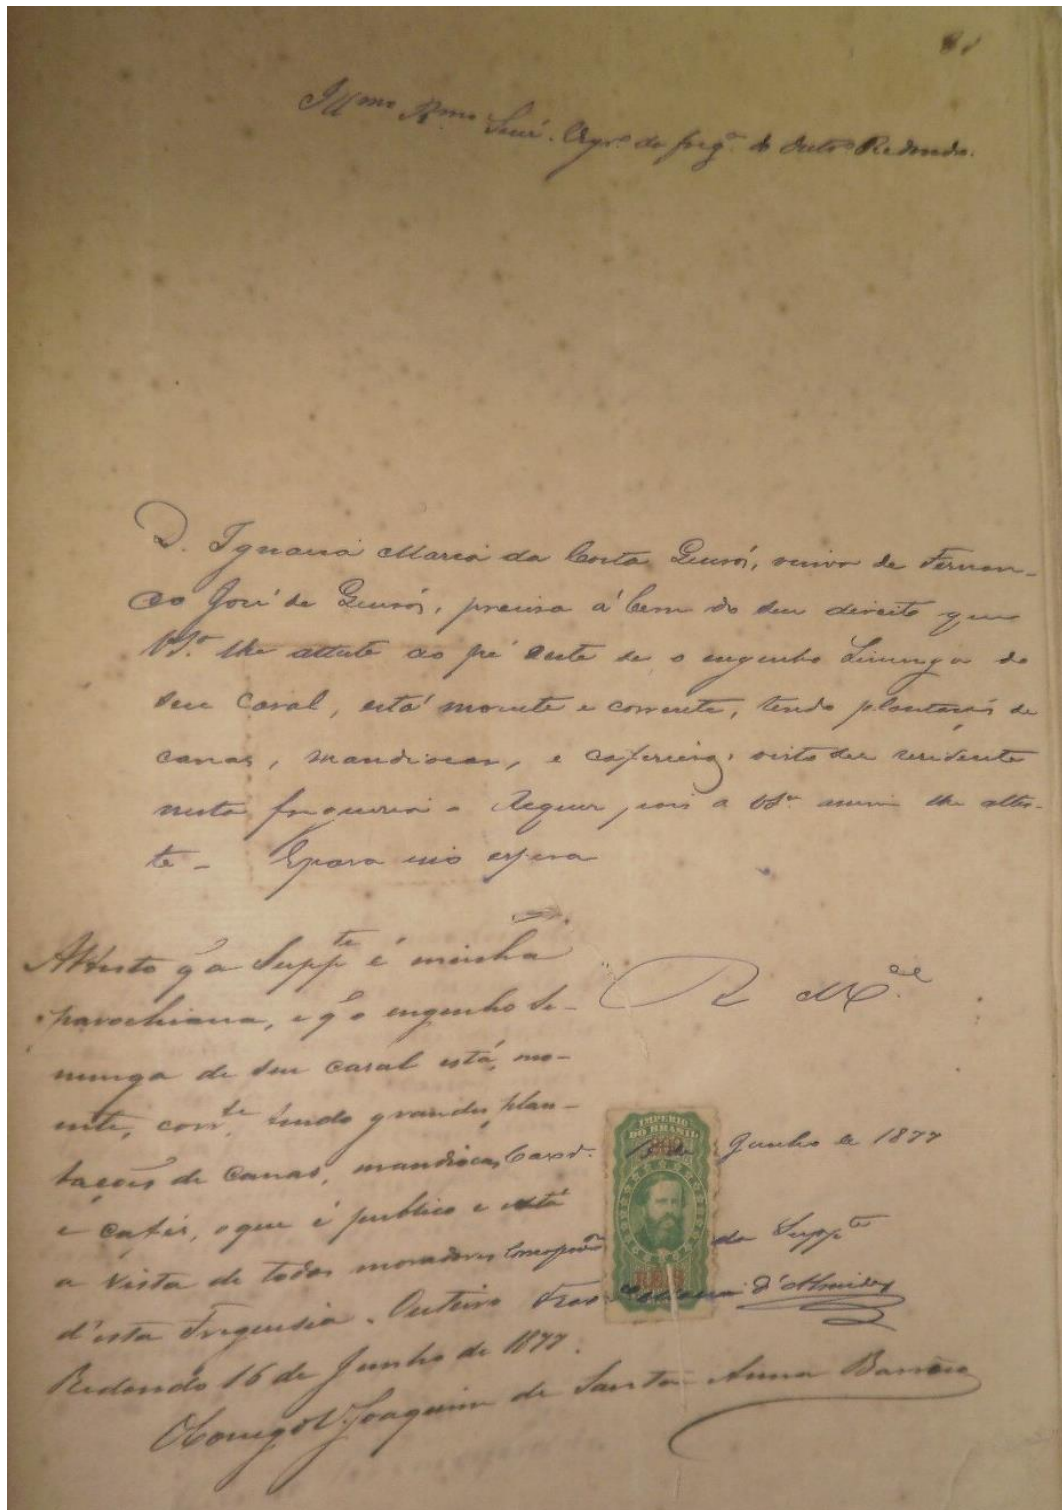 Illmo Rmo Senr. Vigro da fregª do Outro Redondo.
D. Ignacia Maria da Costa Queirós, viuva de Fernan-
do José de Queirós, precisa á bem do seu direito que
VSª lhe atteste ao pé deste se o engenho Sinunga do
seu casal, está moente e corrente, tendo plantações de
canas, mandiocas, e cafeeiros, visto ser residente
nesta freguesia e Requer, pois a VSª assim lhe attes-
te _ E para isso espera
R Mce
Attesto q̃ a Suppte é minha
parochiana, e q̃ o engenho Se-
nunga de seu casal está, mo-
ente, corrte, tendo grandes plan-
tações de canas, mandiocas
e cafés, o que é publico e está
a vista de todos moradores
d'esta Freguesia. Outeiro
Redondo 16 de Junho de 1877.
Conego Joaquim de Santa Anna
IMPERIO
DO BRASIL
200
REIS
Junho de 1877
da Suppte
d'Almeida